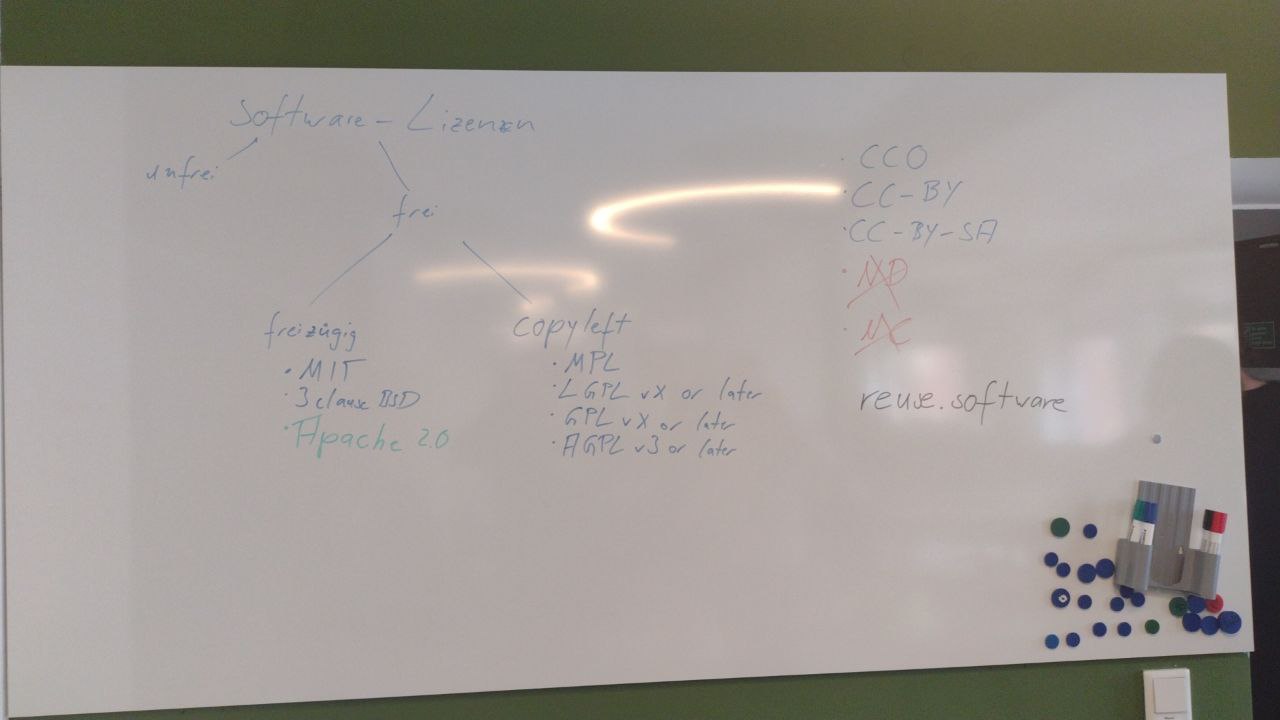 Software - Lizenzen
unfrei
frei
freizügig
· MIT
· 3 clause BSD
· Apache 2.0
copyleft
· MPL
· LGPL vX or later
· GPL vX or later
· AGPL v3 or later
· CC0
· CC-BY
· CC-BY-SA
· ND
· NC
reuse.software